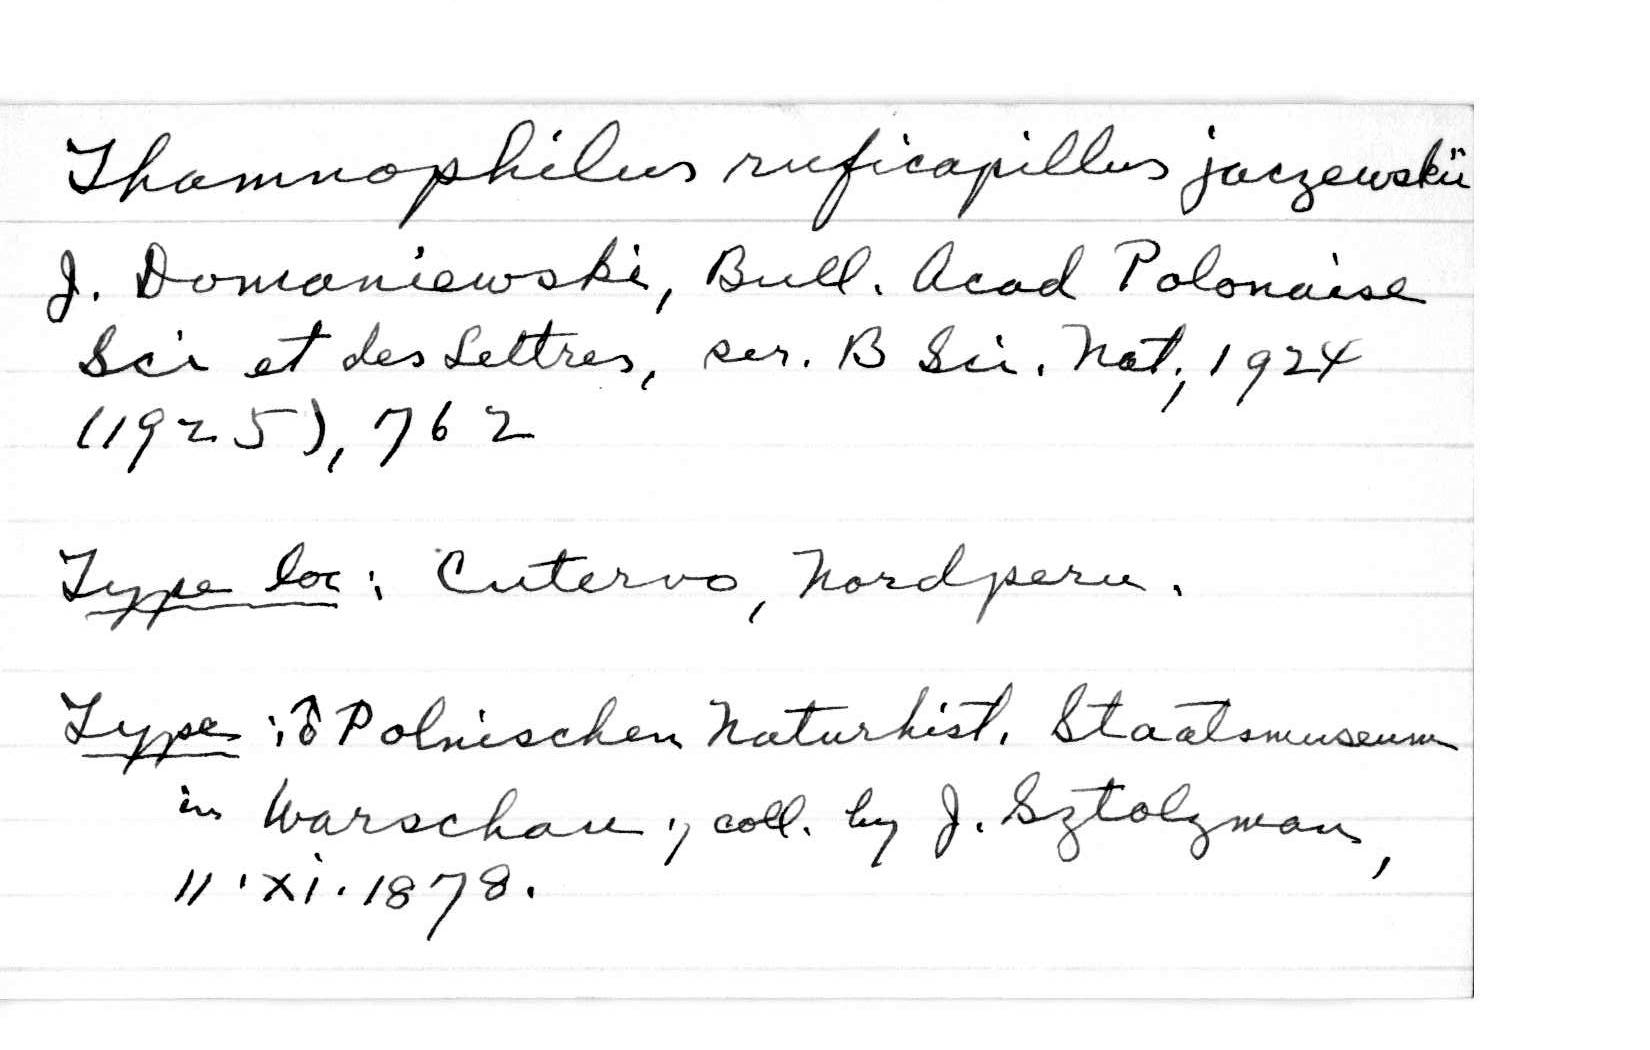 Thamnophilus ruficapillus jaczewskii
J. Domaniewski, Bull. Acad Polonaise
Sci et des Lettres, ser. B Sci. Nat., 1924
(1925), 762
Type loc: Cutervo, Nordperu.
Type: ♂ Polnischen Naturhist. Staatsmuseum
in Warschau; coll. by J. Sztolzman,
11.xi.1878.